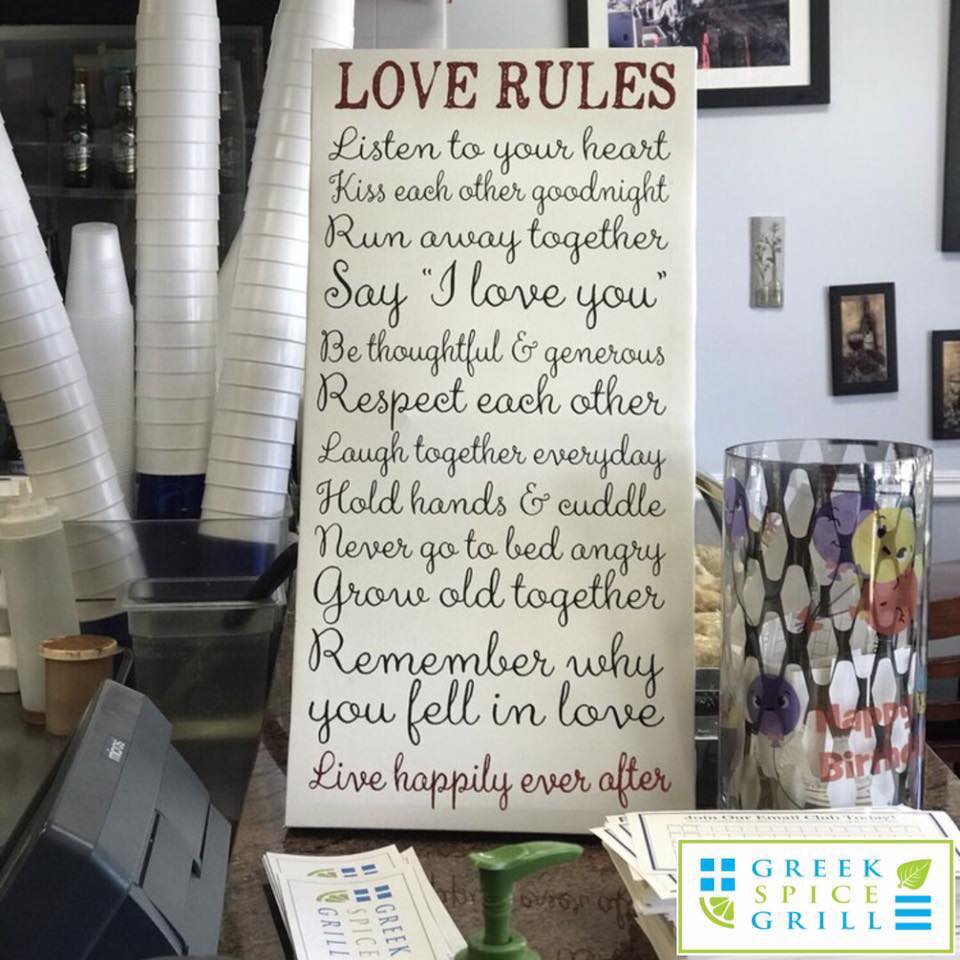 LOVE RULES
Listen to your heart
Kiss each other goodnight
Run away together
Say "I love you"
Be thoughtful & generous
Respect each other
Laugh together everyday
Hold hands & cuddle
Never go to bed angry
Grow old together
Remember why
you fell in love
Live happily ever after
Happy
micros
Join Our Email Club Today!
GREEK
SPICE
GRILL
GREEK
SPICE
GRILL